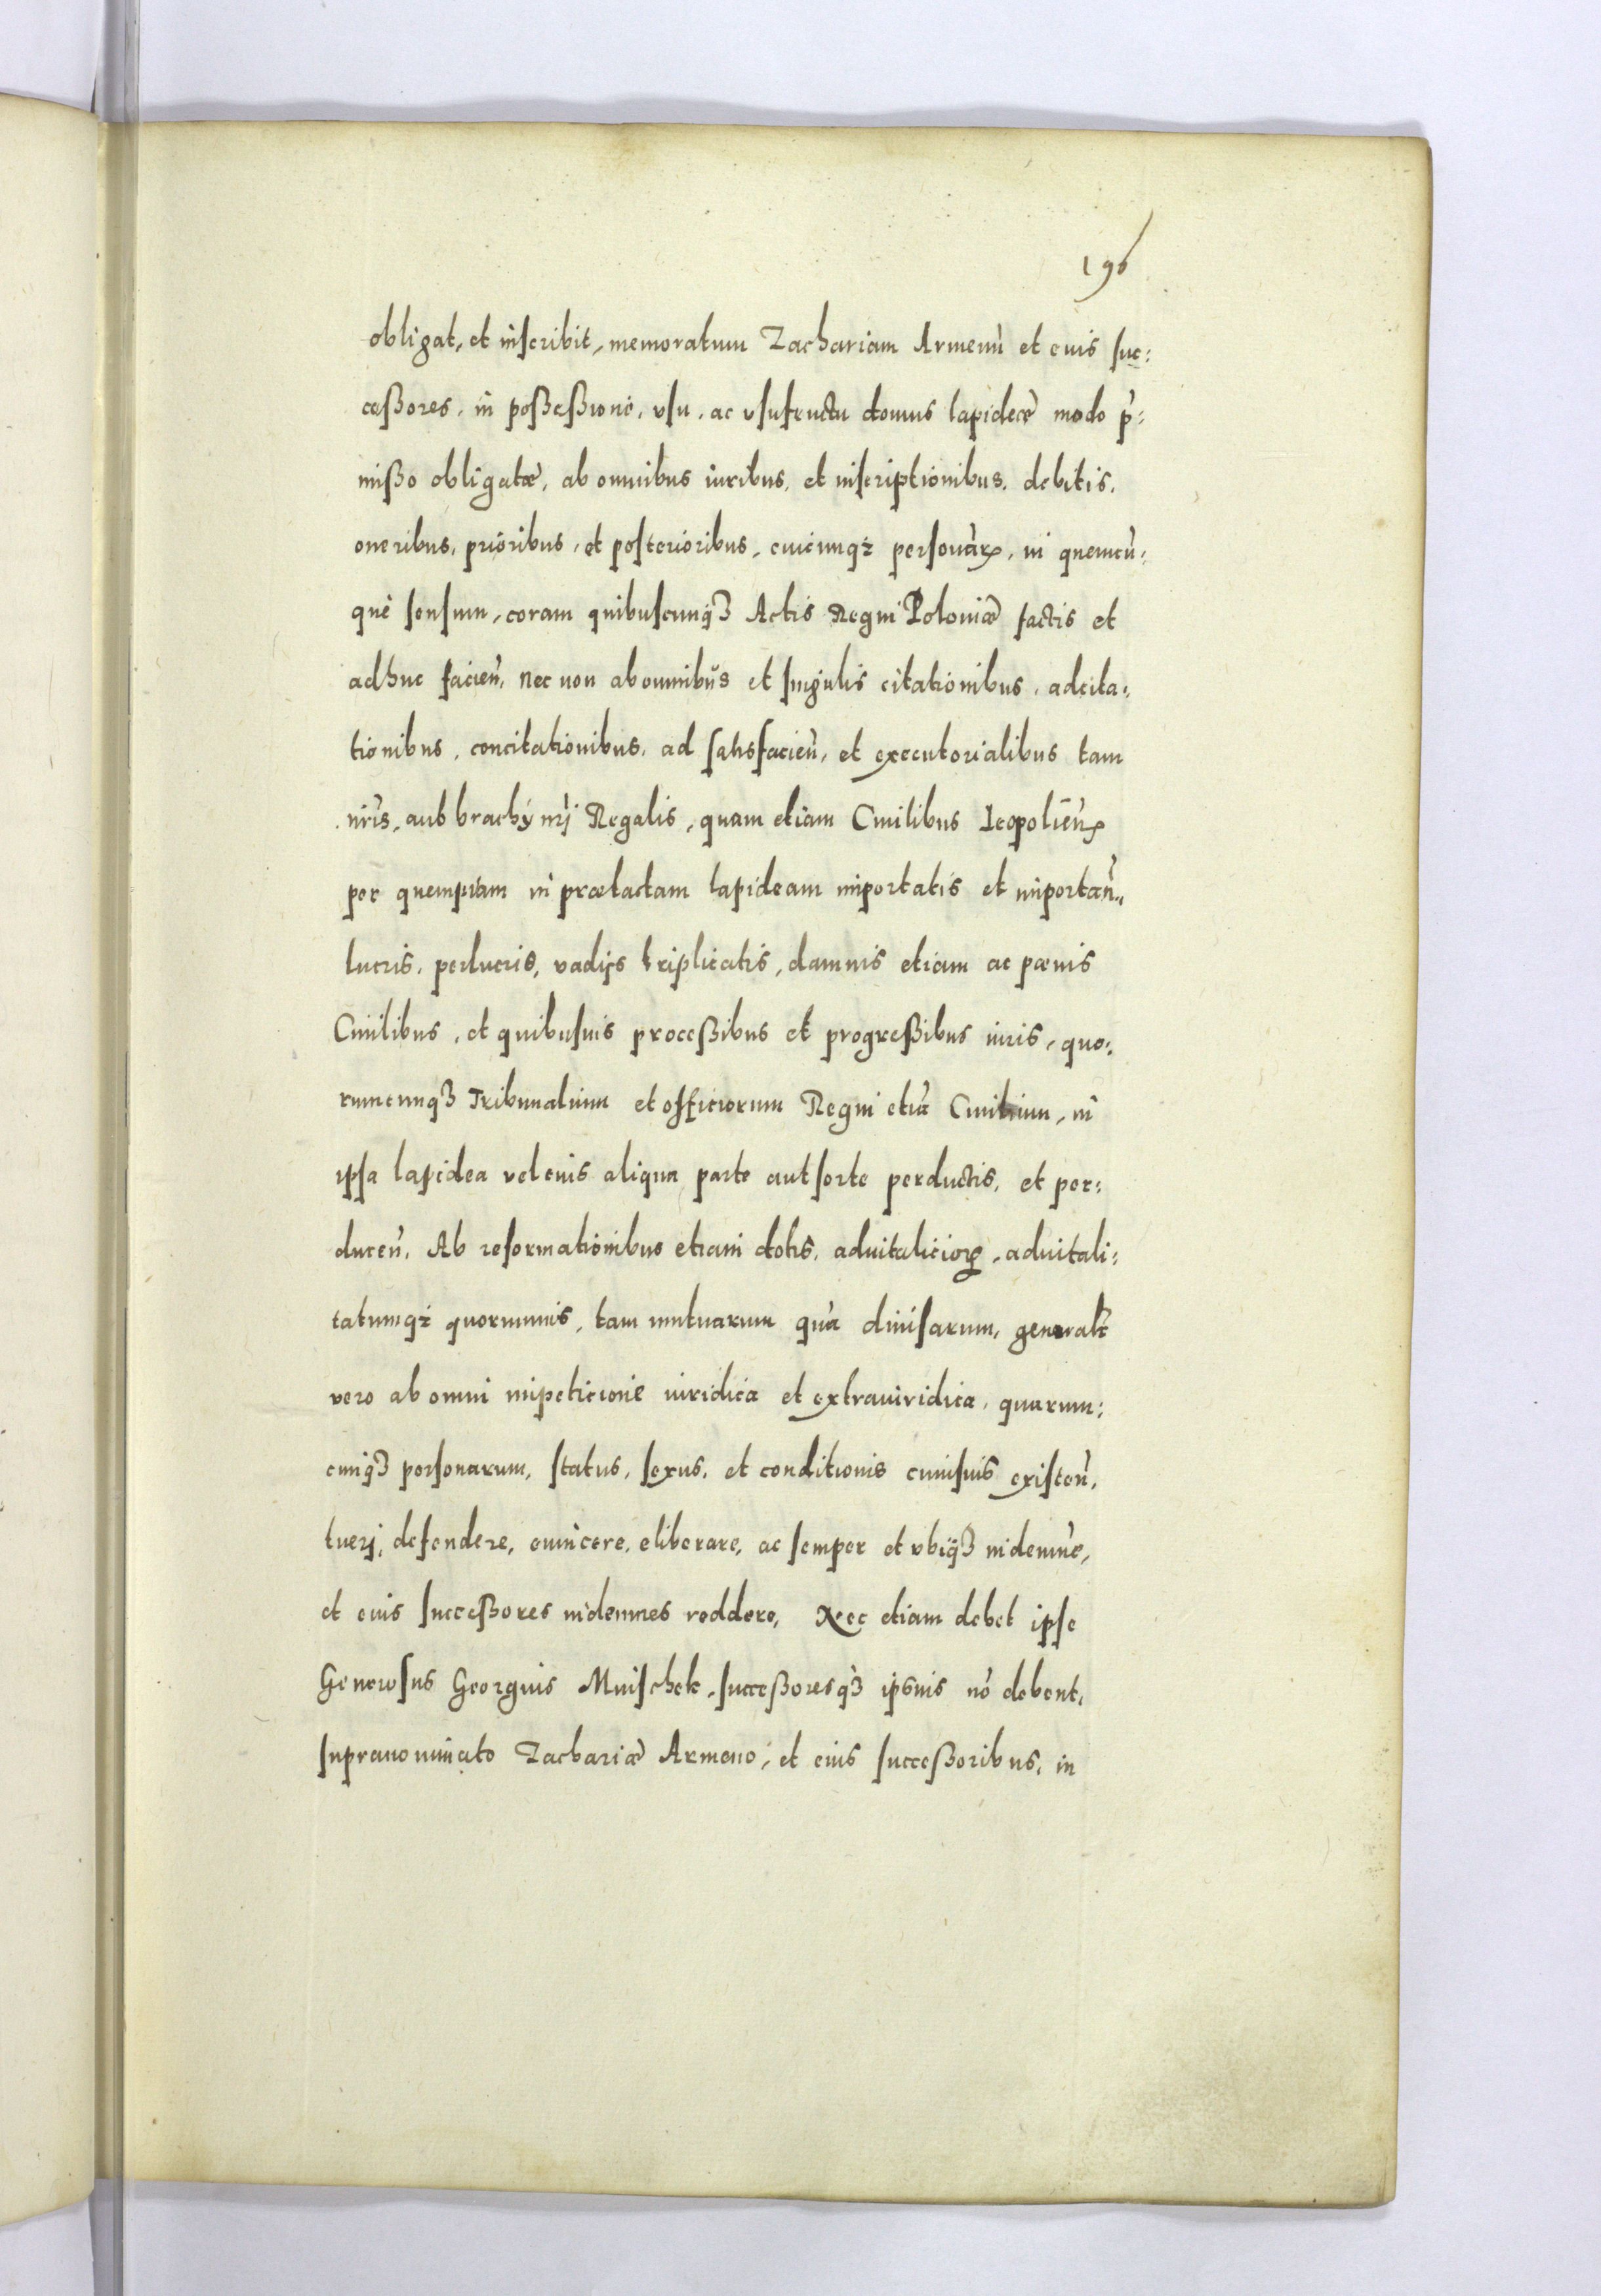 196
obligat, et inscribit, memoratum Zachariam Armenū et eius suc:
ceßores, in poßeßione, vsu, ac vsufructu domus lapideæ modo p̄:
mißo obligatæ, ab omnibus iuribus, et inscriptionibus, debitis,
oneribus, prioribus, et posterioribus, cuicunqꝫ personarꝝ, in quemcū:
que sensum, coram quibuscunqꝫ Actis Regni Poloniæ factis et
adhuc facien̄, nec non ab omnibus et singulis citationibus, adcita:
tionibus, concitationibus, ad satisfacien̄, et executorialibus tam
nr̄is, aut brachÿ nr̄j Regalis, quam etiam Ciuilibus Leopolien̄
per quempiam in prætactam lapideam importatis et importan̄,
lucris, perlucris, vadijs triplicatis, damnis etiam ac pænis
Ciuilibus, et quibusuis proceßibus et progreßibus iuris, quo:
rumcunqꝫ Tribunalium et officiorum Regni etiā Ciuilium, in
ipsa lapidea vel eius aliqua parte aut sorte perductis, et per:
ducen̄. Ab reformationibus etiam dotis, aduitaliciorꝝ, aduitali:
tatumqꝫ quorumuis, tam mutuarum quā diuisarum, generalr̄
vero ab omni impeticione iuridica et extraiuridica, quarum:
cunqꝫ personarum, status, sexus, et conditionis cuiusuis existen̄,
tuerj, defendere, euincere, eliberare, ac semper et vbiqꝫ indemnē,
et eius succeßores indemnes reddere, Nec etiam debet ipse
Generosus Georgius Mnischek, succeßoresqꝫ ipsius nō debent,
supranominato Zachariæ Armeno, et eius succeßoribus, in